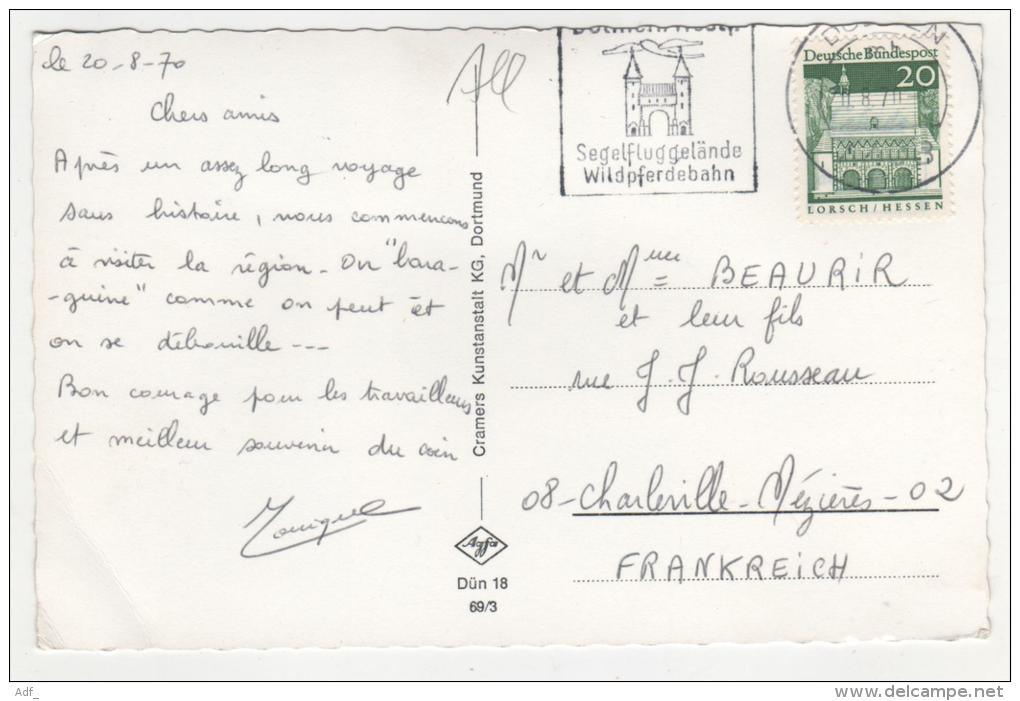 le 20-8-70
All
Chers amis
Après un assez long voyage
sans histoire, nous commencons
à visiter la région - On "bara-
-guine" comme on peut et
on se débrouille ---
Bon courage pour les travailleurs
et meilleur souvenir du coin
Monique
Cramers Kunstanstalt KG, Dortmund
Agfa
Dün 18
69/3
Segelfluggelände
Wildpferdebahn
Deutsche Bundespost
20
LORSCH/HESSEN
Mr et Mme BEAURIR
et leur fils
rue J.J. Rousseau
08-Charleville-Mézières-02
FRANKREICH
Adf_
www.delcampe.net